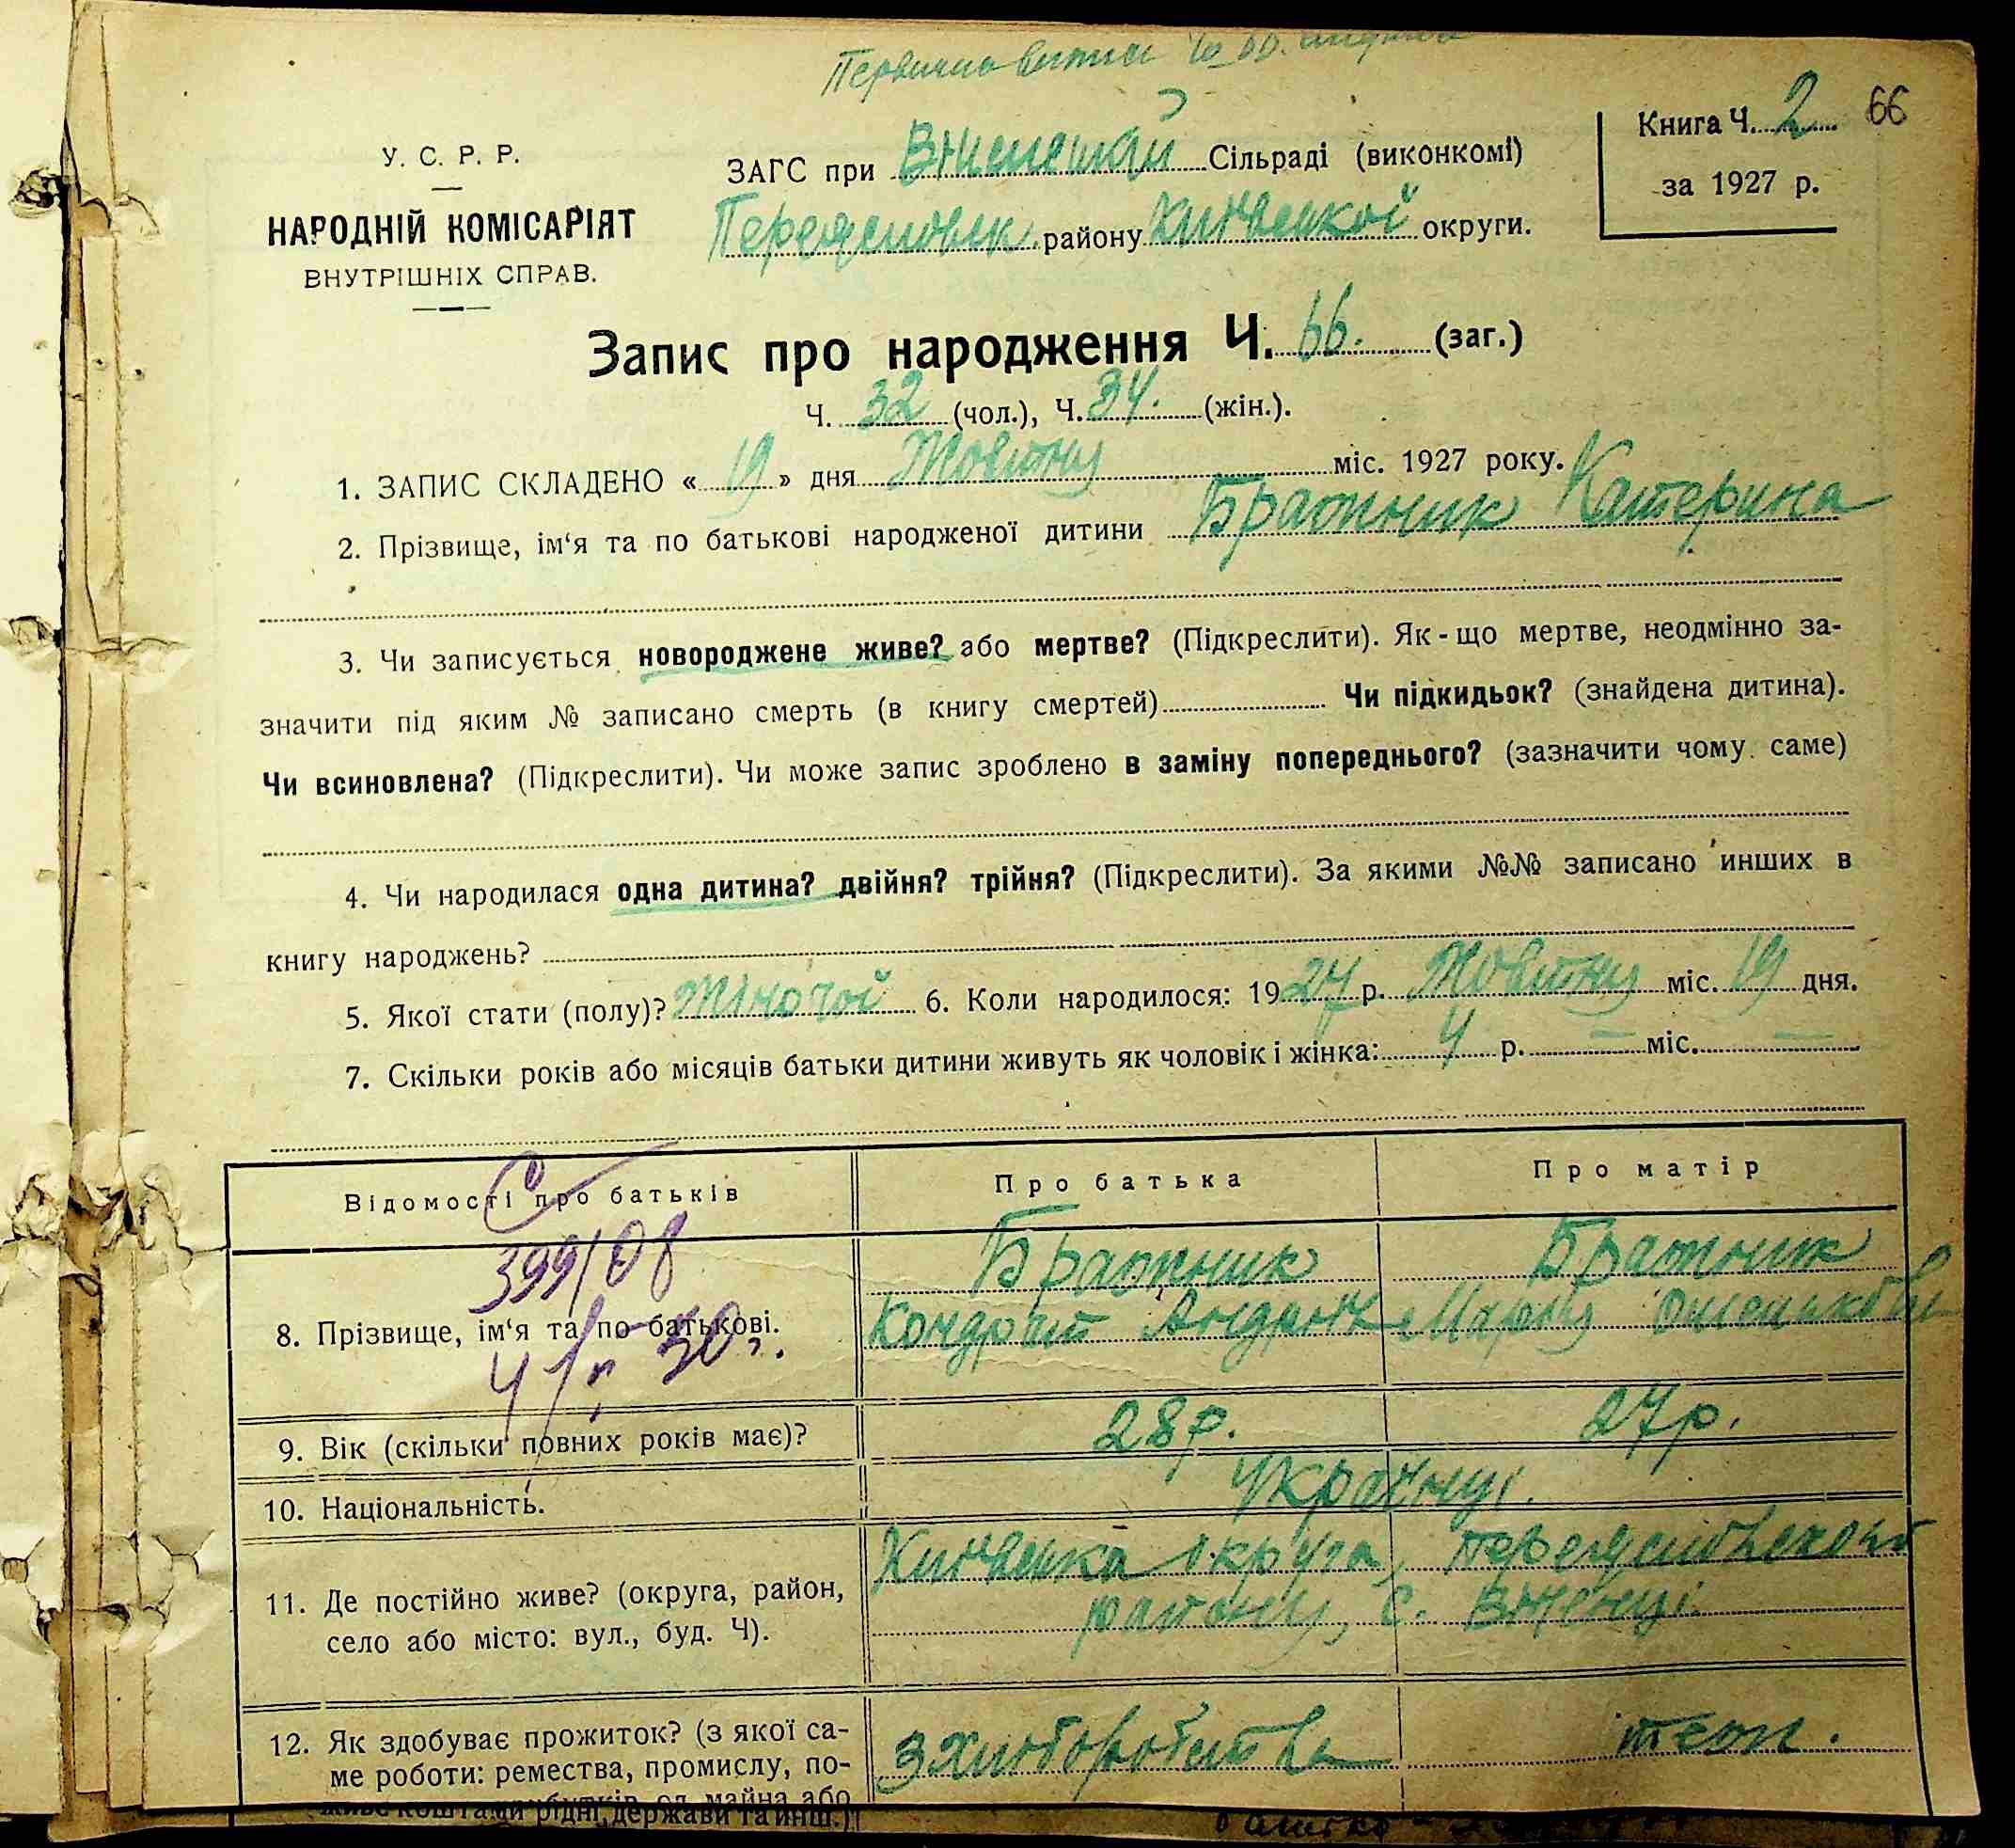 Первинна виписка
66
У. С. Р. Р.
НАРОДНІЙ КОМІСАРІЯТ
ВНУТРІШНІХ СПРАВ.
ЗАГС при Сільраді (виконкомі)
району округи.
Книга Ч. 2
за 1927 р.
Запис про народження Ч. 66. (заг.)
Ч. 32 (чол.), Ч. 34. (жін.).
1. ЗАПИС СКЛАДЕНО « 19 » дня Жовтня міс. 1927 року.
2. Прізвище, ім‘я та по батькові народженої дитини Бражник Катерина
3. Чи записується новороджене живе? або мертве? (Підкреслити). Як - що мертве, неодмінно за-
значити під яким № записано смерть (в книгу смертей) Чи підкидьок? (знайдена дитина).
Чи всиновлена? (Підкреслити). Чи може запис зроблено в заміну попереднього? (зазначити чому саме)
4. Чи народилася одна дитина? двійня? трійня? (Підкреслити). За якими №№ записано инших в
книгу народжень?
5. Якої стати (полу)? Жіночої 6. Коли народилося: 1927 р. Жовтня міс. 19 дня.
7. Скільки років або місяців батьки дитини живуть як чоловік і жінка: 4 р. — міс. —
Відомості про батьків Про батька Про матір
399/08
8. Прізвище, ім‘я та по батькові. Бражник Бражник
Кондрат Марія
30 г.
9. Вік (скільки повних років має)? 28 р. 27 р.
10. Національність. Українці.
11. Де постійно живе? (округа, район,
село або місто: вул., буд. Ч).
округа,
району, с.
12. Як здобуває прожиток? (з якої са-
ме роботи: ремества, промислу, по-
З хліборобства теж.
живе коштами рідні, держави та инш.)